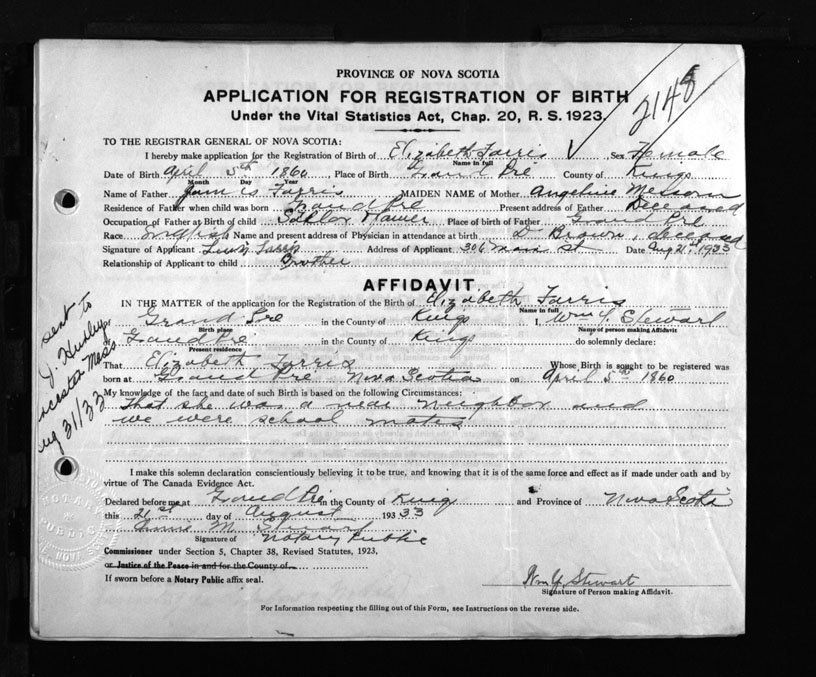 PROVINCE OF NOVA SCOTIA
APPLICATION FOR REGISTRATION OF BIRTH
2148
Under the Vital Statistics Act, Chap. 20, R. S. 1923.
TO THE REGISTRAR GENERAL OF NOVA SCOTIA:
I hereby make application for the Registration of Birth of Elizabeth Farris Sex Female
Name in full
Date of Birth April 5th 1860 Place of Birth Grand Pré County of Kings
Month Day Year
Name of Father Farris MAIDEN NAME of Mother Angeline
Residence of Father when child was born Grand Pré Present address of Father Deceased
Occupation of Father at Birth of child Place of Birth of Father Grand Pré
Race English Name and present address of Physician in attendance at birth Dr Brown, deceased
Signature of Applicant Farris Address of Applicant 306 Main St Date Aug 21, 1933
Relationship of Applicant to child Brother
AFFIDAVIT
IN THE MATTER of the application for the Registration of the Birth of Elizabeth Farris
Name in full
Grand Pre in the County of Kings I, Wm Y. Stewart
Birth place Name of person making Affidavit
of Grand Pré in the County of Kings do solemnly declare:
Present residence
That Elizabeth Farris Whose Birth is sought to be registered was
born at Grand Pré Nova Scotia on April 5th 1860
My knowledge of the fact and date of such Birth is based on the following Circumstances:
That she was a near neighbor and
we were school mates
I make this solemn declaration conscientiously believing it to be true, and knowing that it is of the same force and effect as if made under oath and by
virtue of The Canada Evidence Act.
Declared before me at Grand Pré in the County of Kings and Province of Nova Scotia
this 21st day of August 193 33
M. Stewart
Signature of Notary Public
Commissioner under Section 5, Chapter 38, Revised Statutes, 1923,
or Justice of the Peace in and for the County of
If sworn before a Notary Public affix seal.
Wm Y. Stewart
Signature of Person making Affidavit.
For Information respecting the filling out of this Form, see Instructions on the reverse side.
sent to
J.
Mass
Aug 31/33
NOTARY
PUBLIC
NOVA SCOTIA